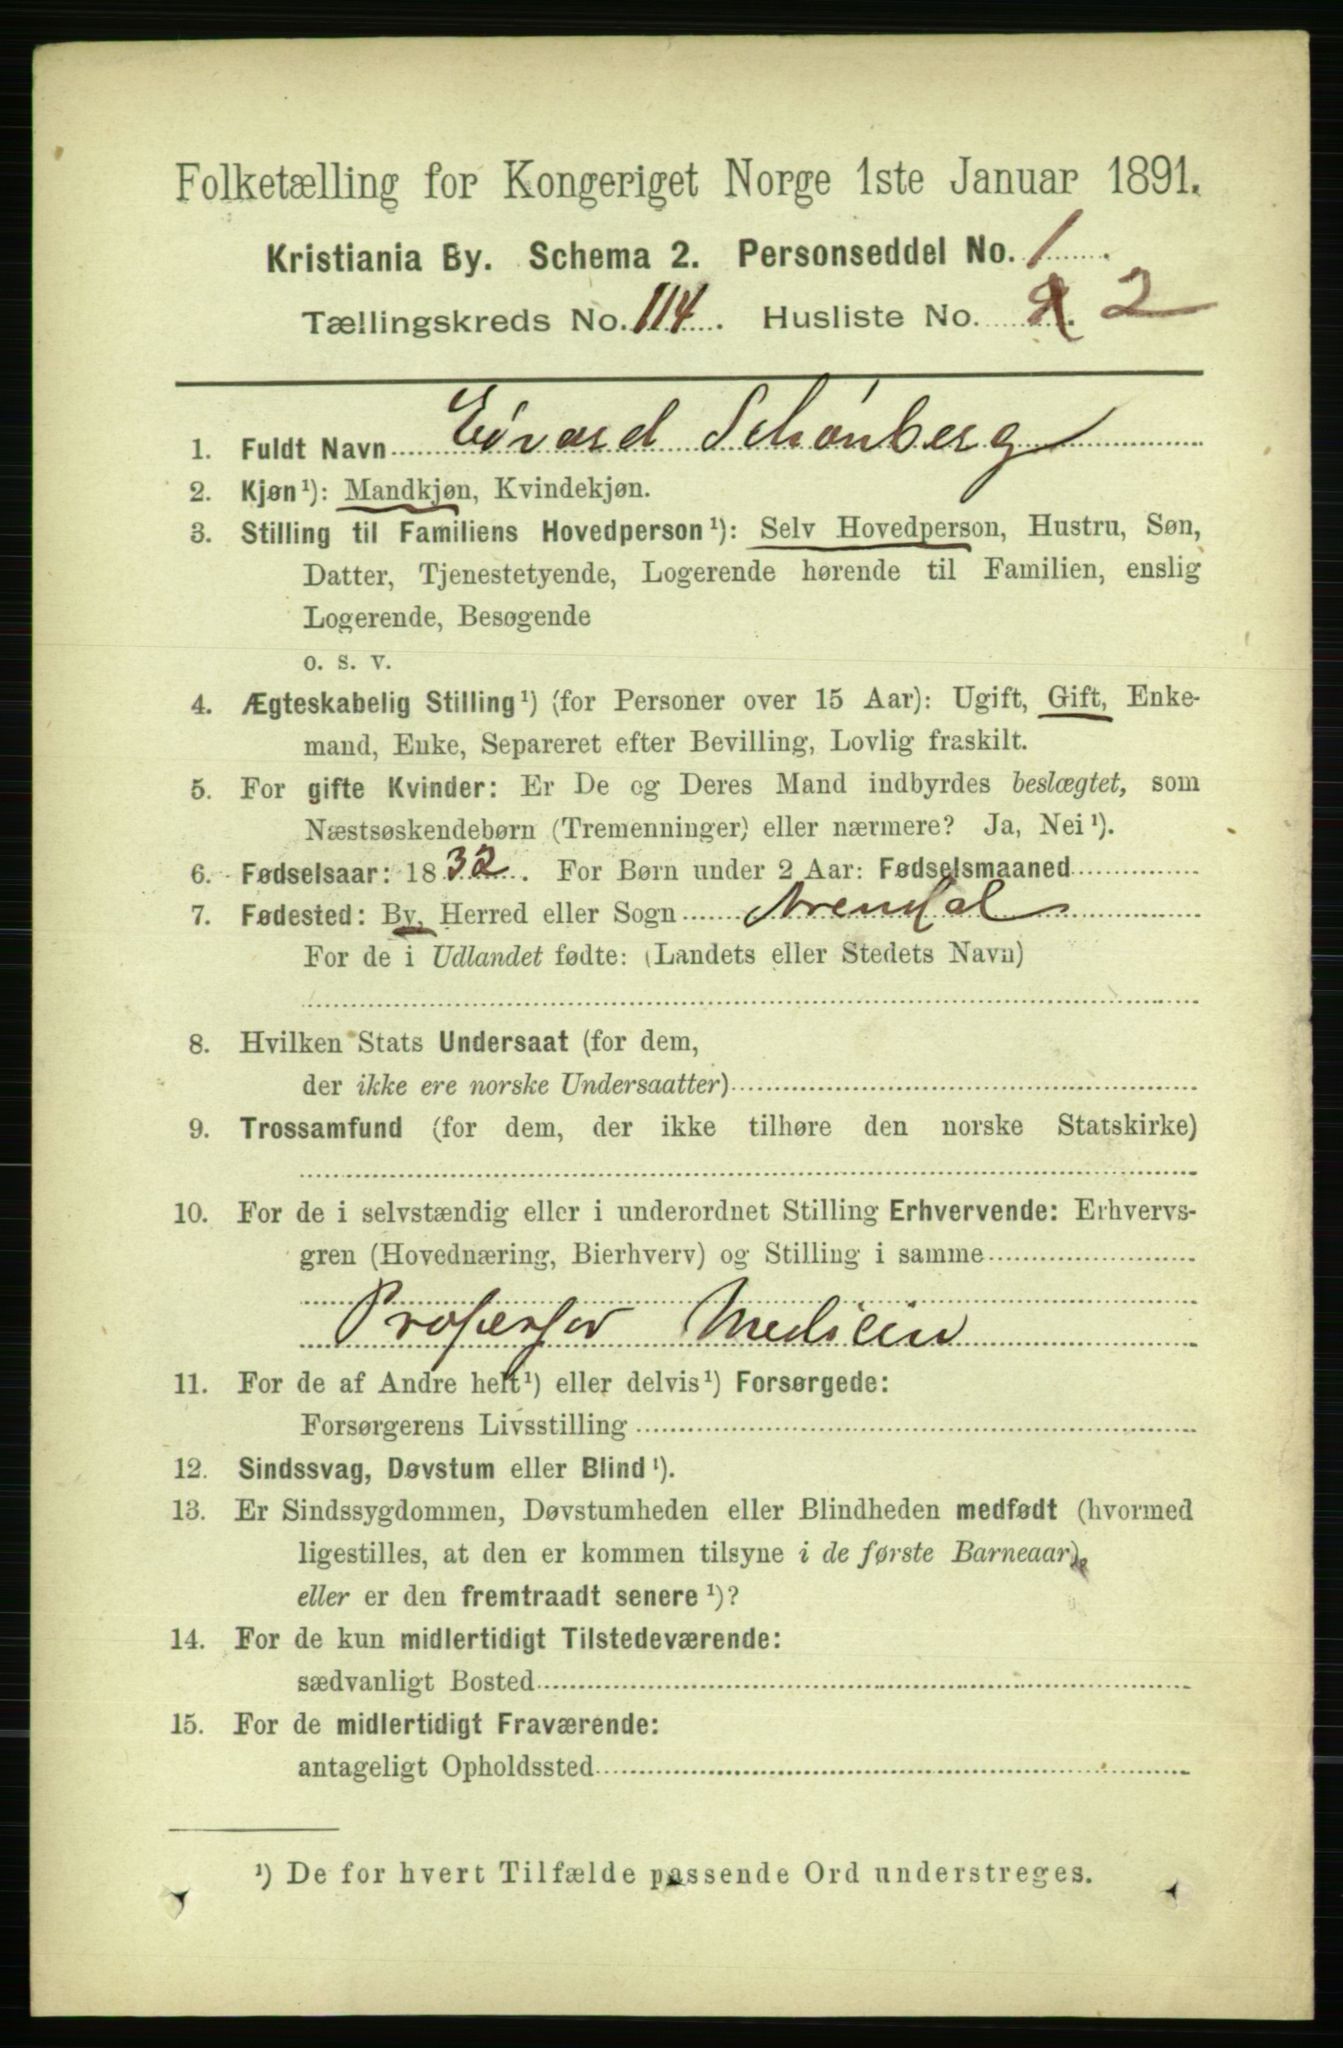 Folketælling for Kongeriget Norge 1ste Januar 1891.
Kristiania By. Schema 2. Personseddel No. 1.
Tællingskreds No. 114. Husliste No. 2
1. Fuldt Navn Edvard Schønberg
2. Kjøn¹): Mandkjøn, Kvindekjøn.
3. Stilling til Familiens Hovedperson¹): Selv Hovedperson, Hustru, Søn,
Datter, Tjenestetyende, Logerende hørende til Familien, enslig
Logerende, Besøgende
o. s. v.
4. Ægteskabelig Stilling¹) (for Personer over 15 Aar): Ugift, Gift, Enke-
mand, Enke, Separeret efter Bevilling, Lovlig fraskilt.
5. For gifte Kvinder: Er De og Deres Mand indbyrdes beslægtet, som
Næstsøskendebørn (Tremenninger) eller nærmere? Ja, Nei¹).
6. Fødselsaar: 1832. For Børn under 2 Aar: Fødselsmaaned
7. Fødested: By, Herred eller Sogn Arendal
For de i Udlandet fødte: (Landets eller Stedets Navn)
8. Hvilken Stats Undersaat (for dem,
der ikke ere norske Undersaatter)
9. Trossamfund (for dem, der ikke tilhøre den norske Statskirke)
10. For de i selvstændig eller i underordnet Stilling Erhvervende: Erhvervs-
gren (Hovednæring, Bierhverv) og Stilling i samme
Professor Medicin
11. For de af Andre helt¹) eller delvis¹) Forsørgede:
Forsørgerens Livsstilling
12. Sindssvag, Døvstum eller Blind¹).
13. Er Sindssygdommen, Døvstumheden eller Blindheden medfødt (hvormed
ligestilles, at den er kommen tilsyne i de første Barneaar),
eller er den fremtraadt senere¹)?
14. For de kun midlertidigt Tilstedeværende:
sædvanligt Bosted
15. For de midlertidigt Fraværende:
antageligt Opholdssted
¹) De for hvert Tilfælde passende Ord understreges.